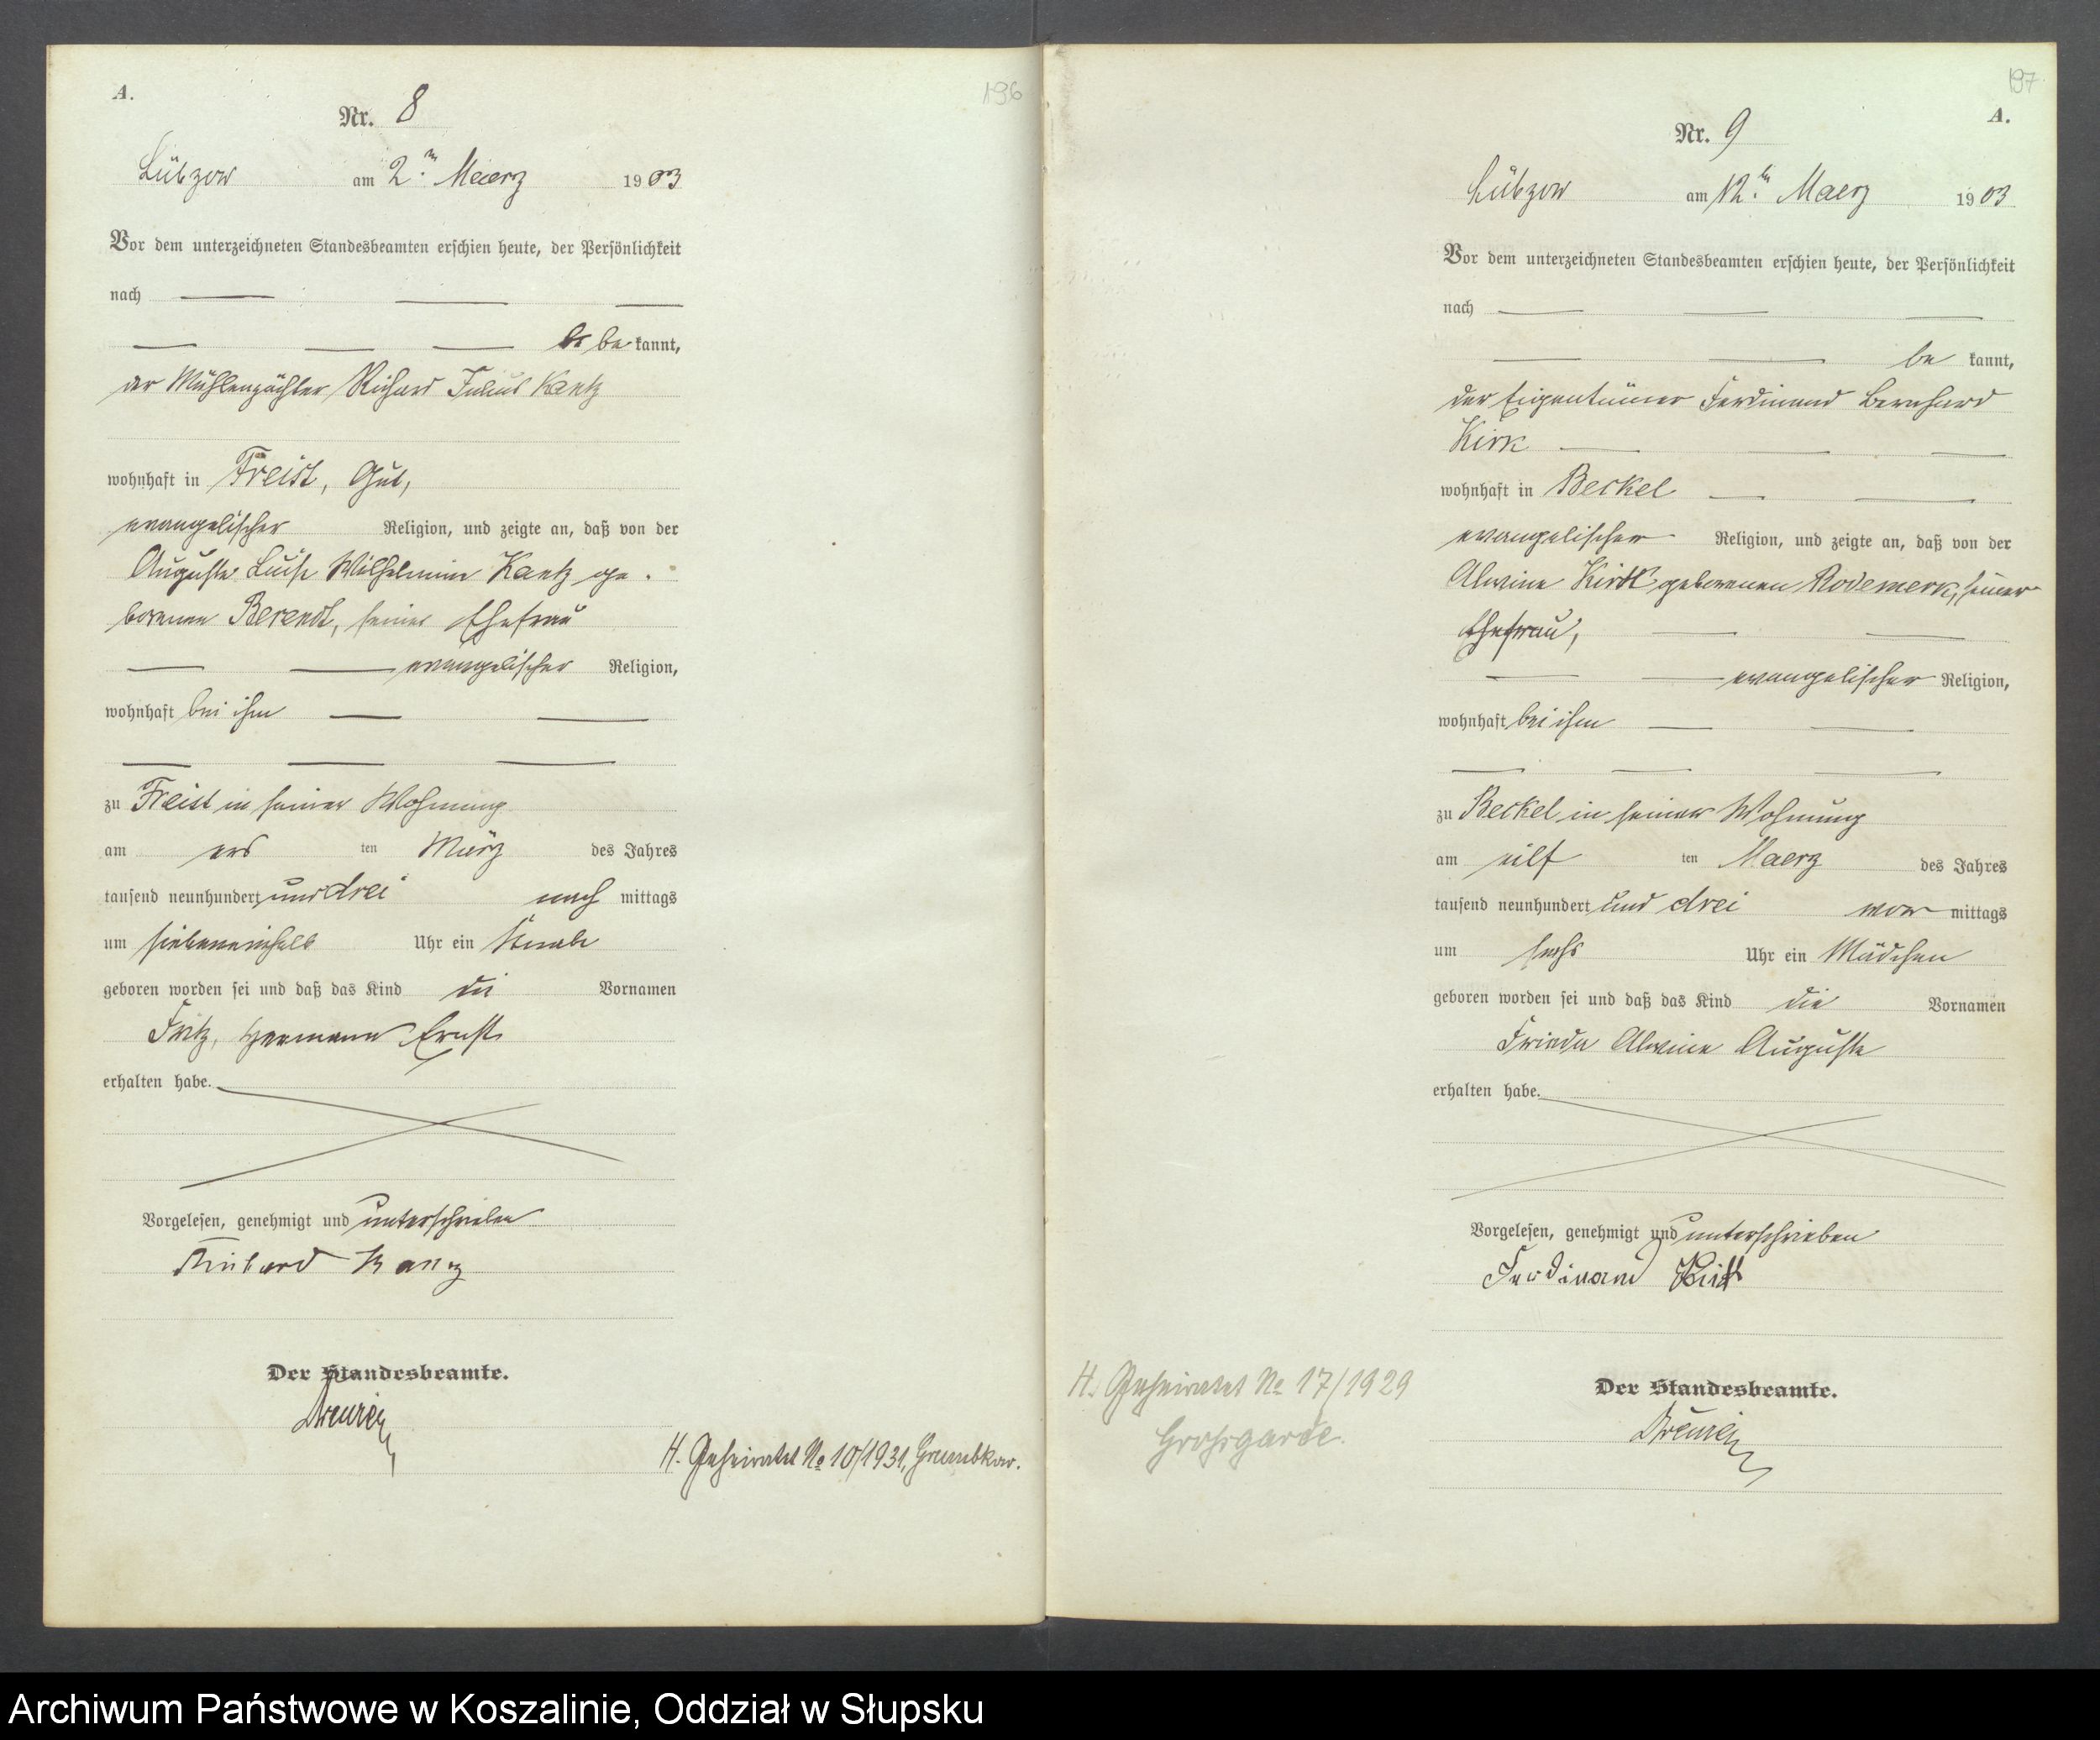 A.
196
Nr. 8
Lübzow am 2.ten Maerz 1903
Vor dem unterzeichneten Standesbeamten erschien heute, der Persönlichkeit
nach
be kannt,
der Mühlenpächter Richard Julius Kantz
wohnhaft in Freist, Gut,
evangelischer Religion, und zeigte an, daß von der
Auguste Luise Wilhelmine Kantz ge-
borenen Berendt, seiner Ehefrau
evangelischer Religion,
wohnhaft bei ihm
zu Freist in seiner Wohnung
am ers ten März des Jahres
tausend neunhundert und drei nach mittags
um siebeneinhalb Uhr ein Knabe
geboren worden sei und daß das Kind die Vornamen
Fritz, Hermann Ernst
erhalten habe.
Vorgelesen, genehmigt und unterschrieben
Richard Kantz
Der Standesbeamte.
H. Geheiratet No 10/1931, Grumbkow.
197
A.
Nr. 9
Lübzow am 12.ten Maerz 1903
Vor dem unterzeichneten Standesbeamten erschien heute, der Persönlichkeit
nach
be kannt,
der Eigentümer Ferdinand Bernhard
Kirk
wohnhaft in Beckel
evangelischer Religion, und zeigte an, daß von der
Alwine Kirk geborenen Rodemerk, seiner
Ehefrau,
evangelischer Religion,
wohnhaft bei ihm
zu Beckel in seiner Wohnung
am eilf ten Maerz des Jahres
tausend neunhundert und drei vor mittags
um sechs Uhr ein Mädchen
geboren worden sei und daß das Kind die Vornamen
Frieda Alwine Auguste
erhalten habe.
Vorgelesen, genehmigt und unterschrieben
Ferdinand Kirk
Der Standesbeamte.
H. Geheiratet No 17/1929
Großgarde.
Archiwum Państwowe w Koszalinie, Oddział w Słupsku